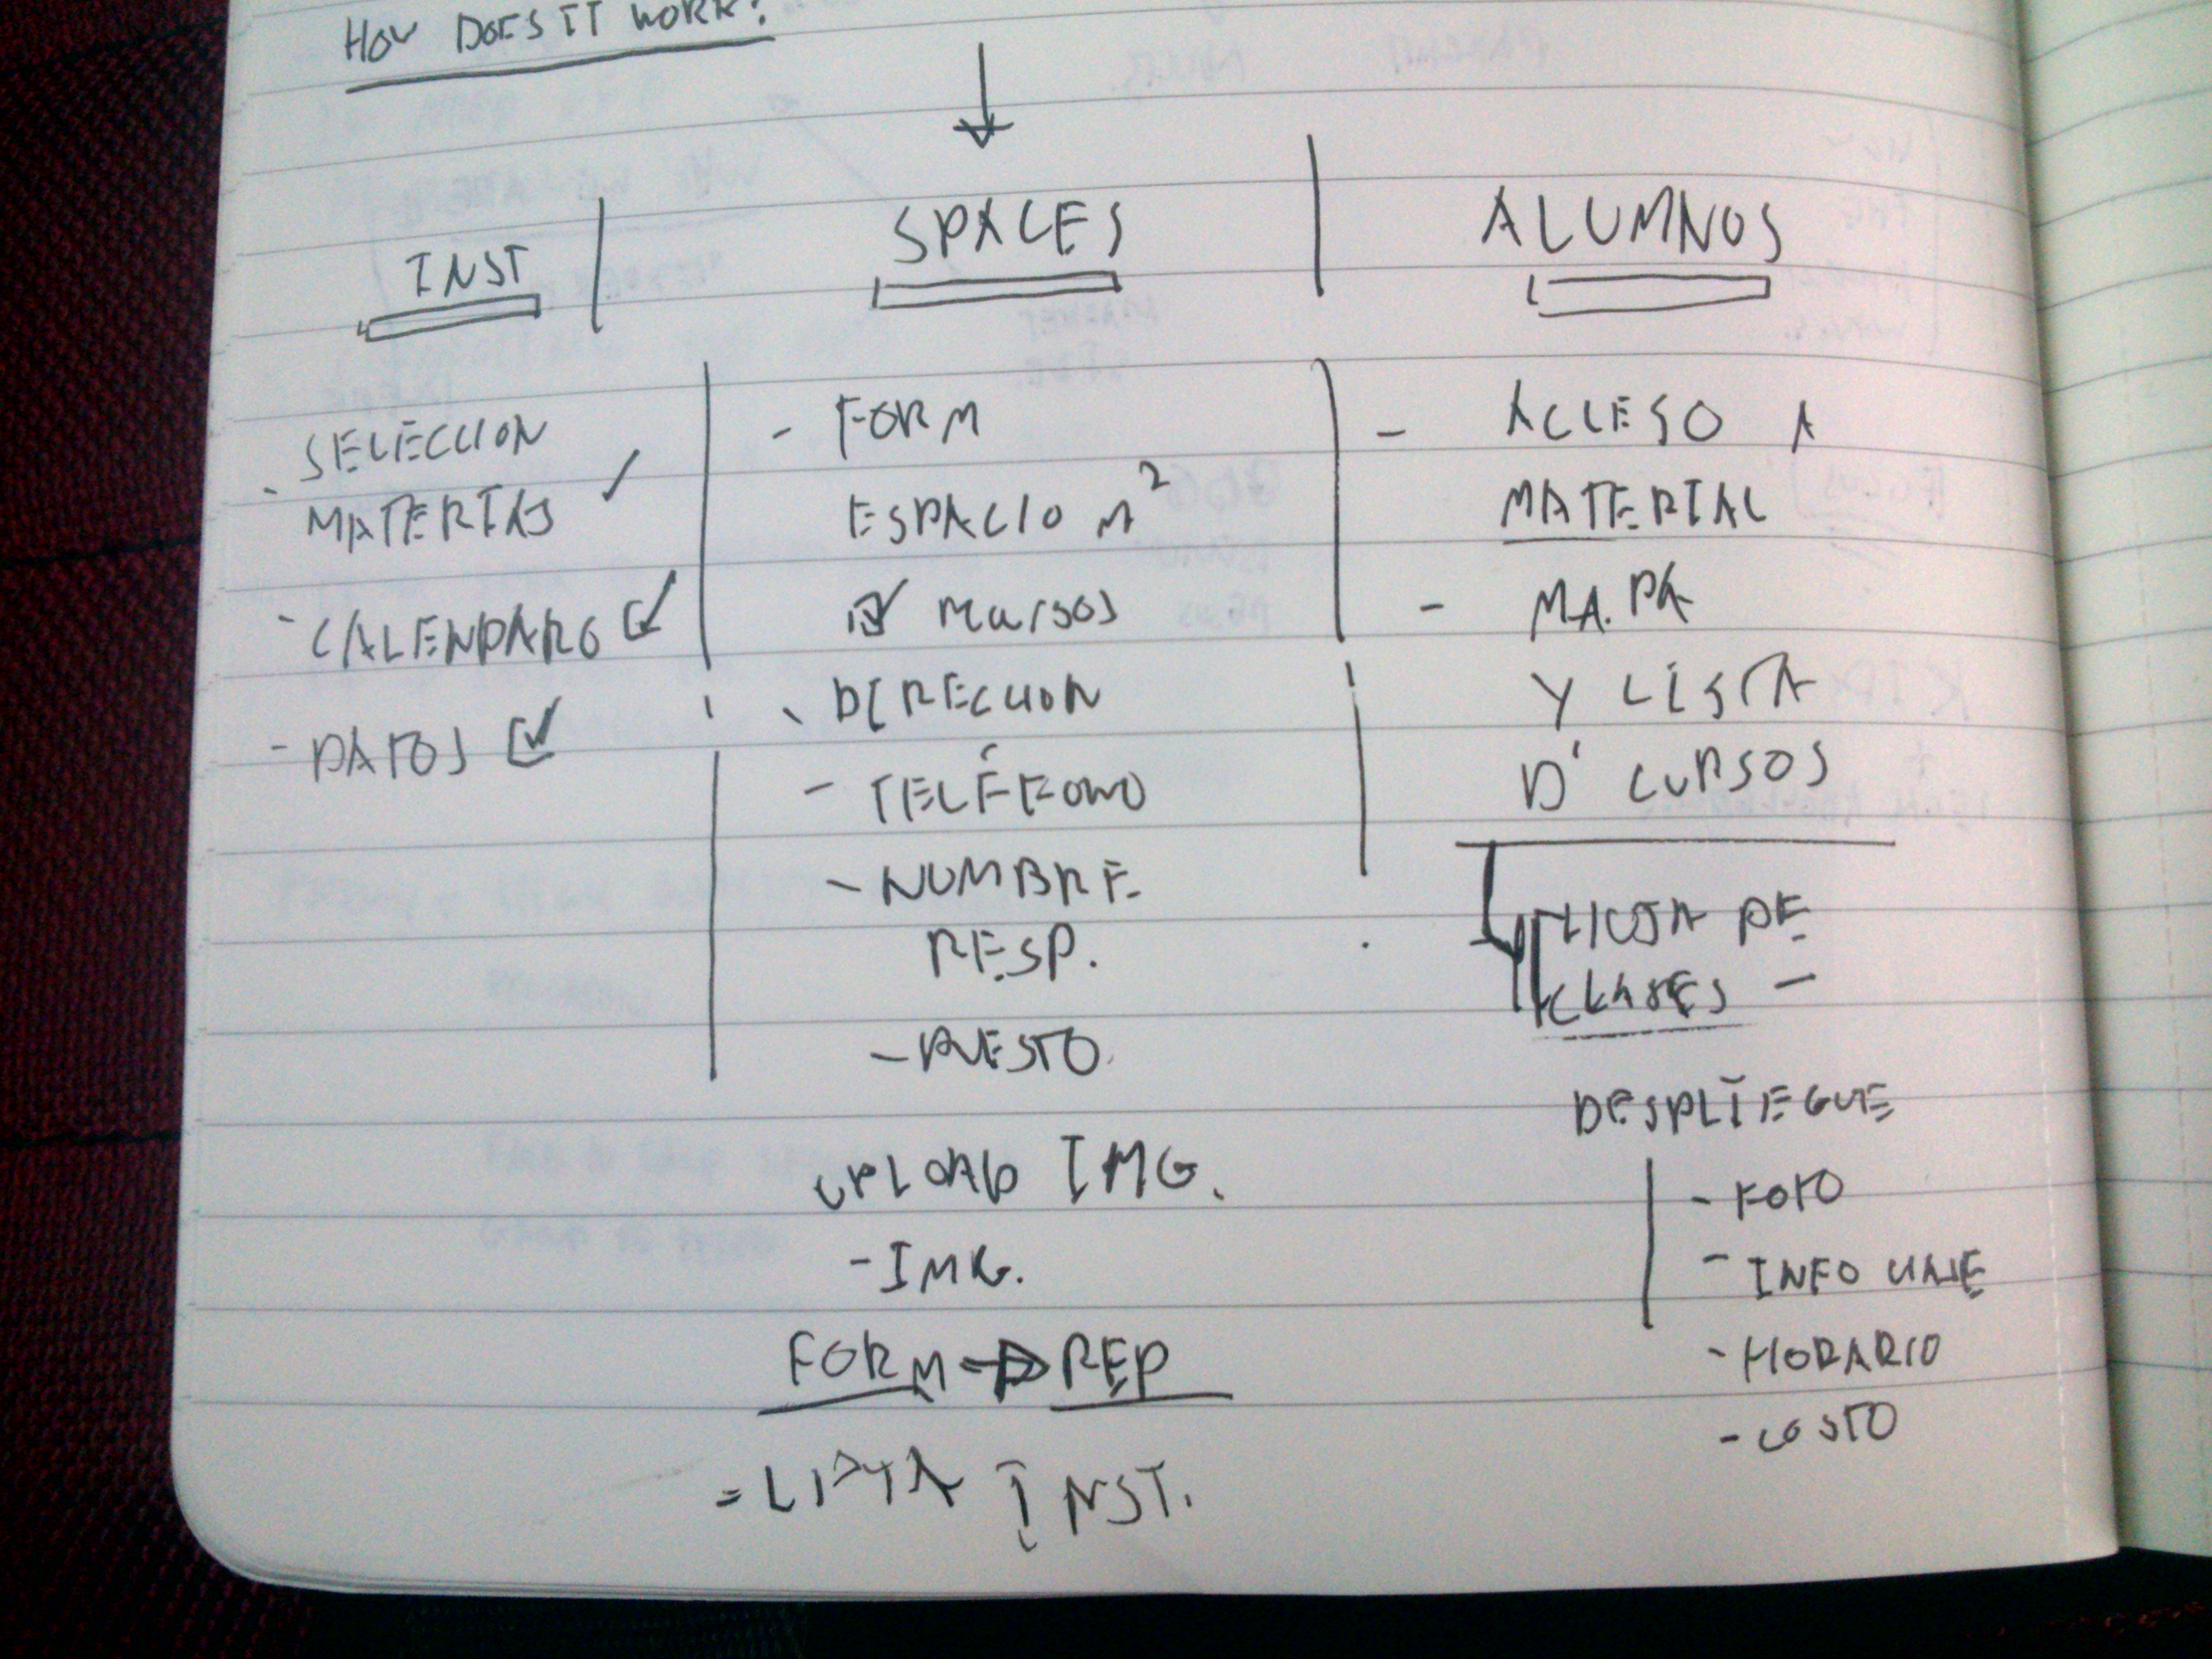 HOW DOES IT WORK?
INST
SELECCION
MATERIAS ✓
- CALENDARO ☑
- DATOS ☑
SPACES
- FORM
ESPACIO M²
☑
- DIRECCION
- TELÉFONO
- NOMBRE
RESP.
- RESTO
UPLOAD IMG.
- IMG.
FORM → REP
= LISTA INST.
ALUMNOS
- ACCESO A
MATERIAL
- MA.PA
Y LISTA
D' CURSOS
LISTA DE
CLASES -
DESPLIEGUE
- FOTO
- INFO CLASE
- HORARIO
- COSTO